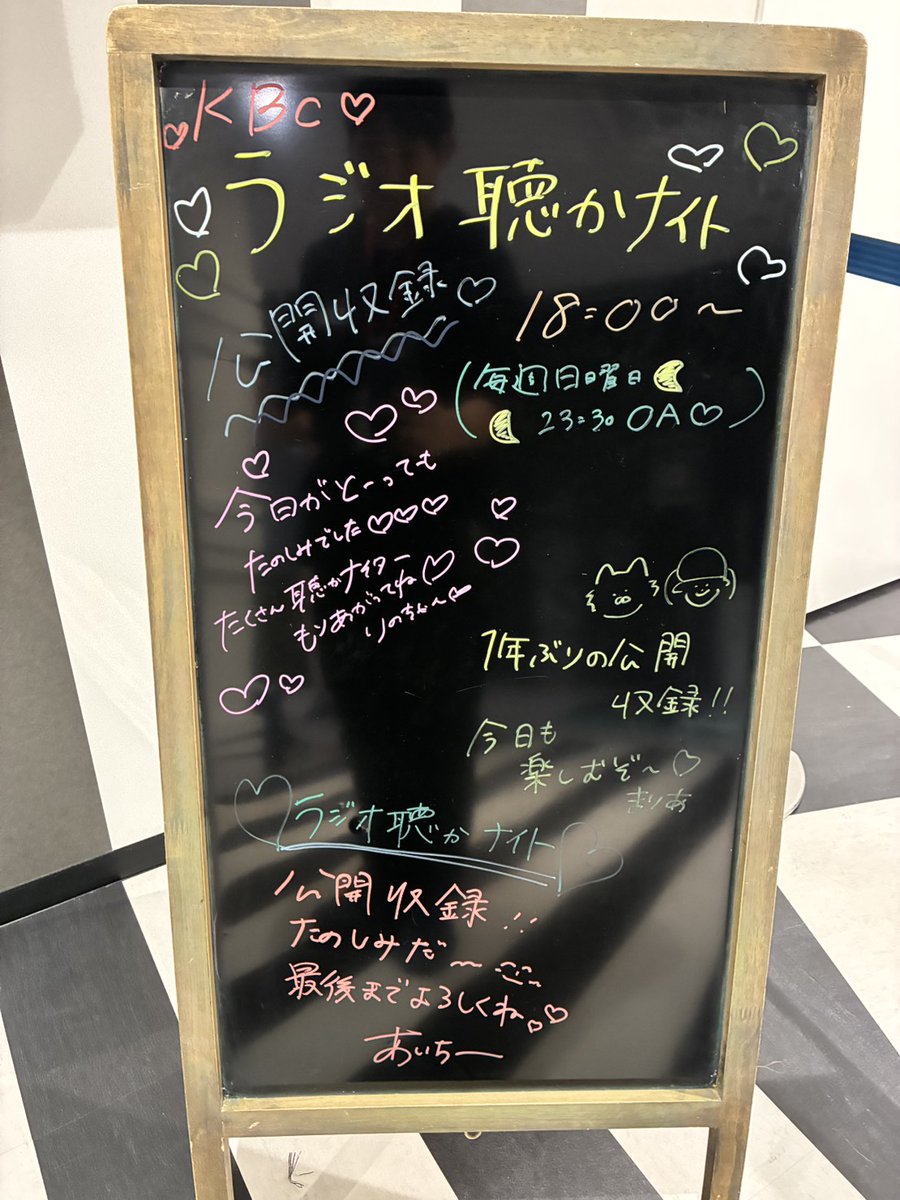 KBC
ラジオ聴かナイト
公開収録
18:00～
(毎週日曜日
23:30 OA)
今日がとーっても
たのしみでした
たくさん聴かナイター
もりあがってね
りのちゃん
1年ぶりの公開
収録!!
今日も
楽しむぞ〜
まりあ
ラジオ聴かナイト
公開収録!!
たのしみだ〜
最後までよろしくね。
あいちー